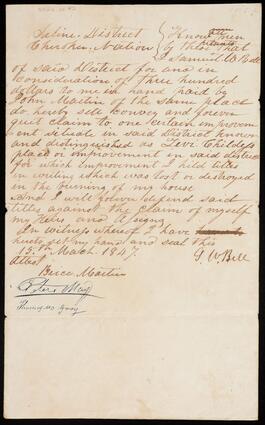 Saline District } Know all men
Cherokee Nation } by these presents that
I Samuel W Bell
of said District for and in
consideration of three hundred
dollars to me in hand paid by
John Martin of the same place
do hereby sell convey and forever
quit claim to one certain improve
ment situate in said District known
and distinguished as Levi Childers
place or improvement in said district
for which improvement I held titles
in writing which was lost or destroyed
in the burning of my house
And I will forever defend said
titles against the claim of myself
my heirs and assigns
In witness whereof I have
hereto set my hand and seal this
13th March 1847. S W Bell
Attest
Brice Martin
Peter May